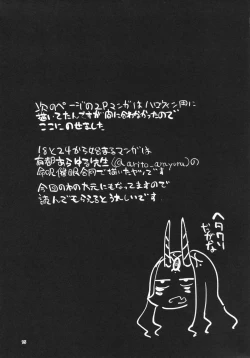 次のページの2Pマンガはハロウィン用に
描いてたんですが間に合わなかったので
ここにのせました
18と24から始まるマンガは
有都あらゆる先生(@arito_arayuru)の
催眠合同で描いたヤツです
今回のわの元にもなってますので
読んでもらえるとうれしいです
ヘタクソ
だかな